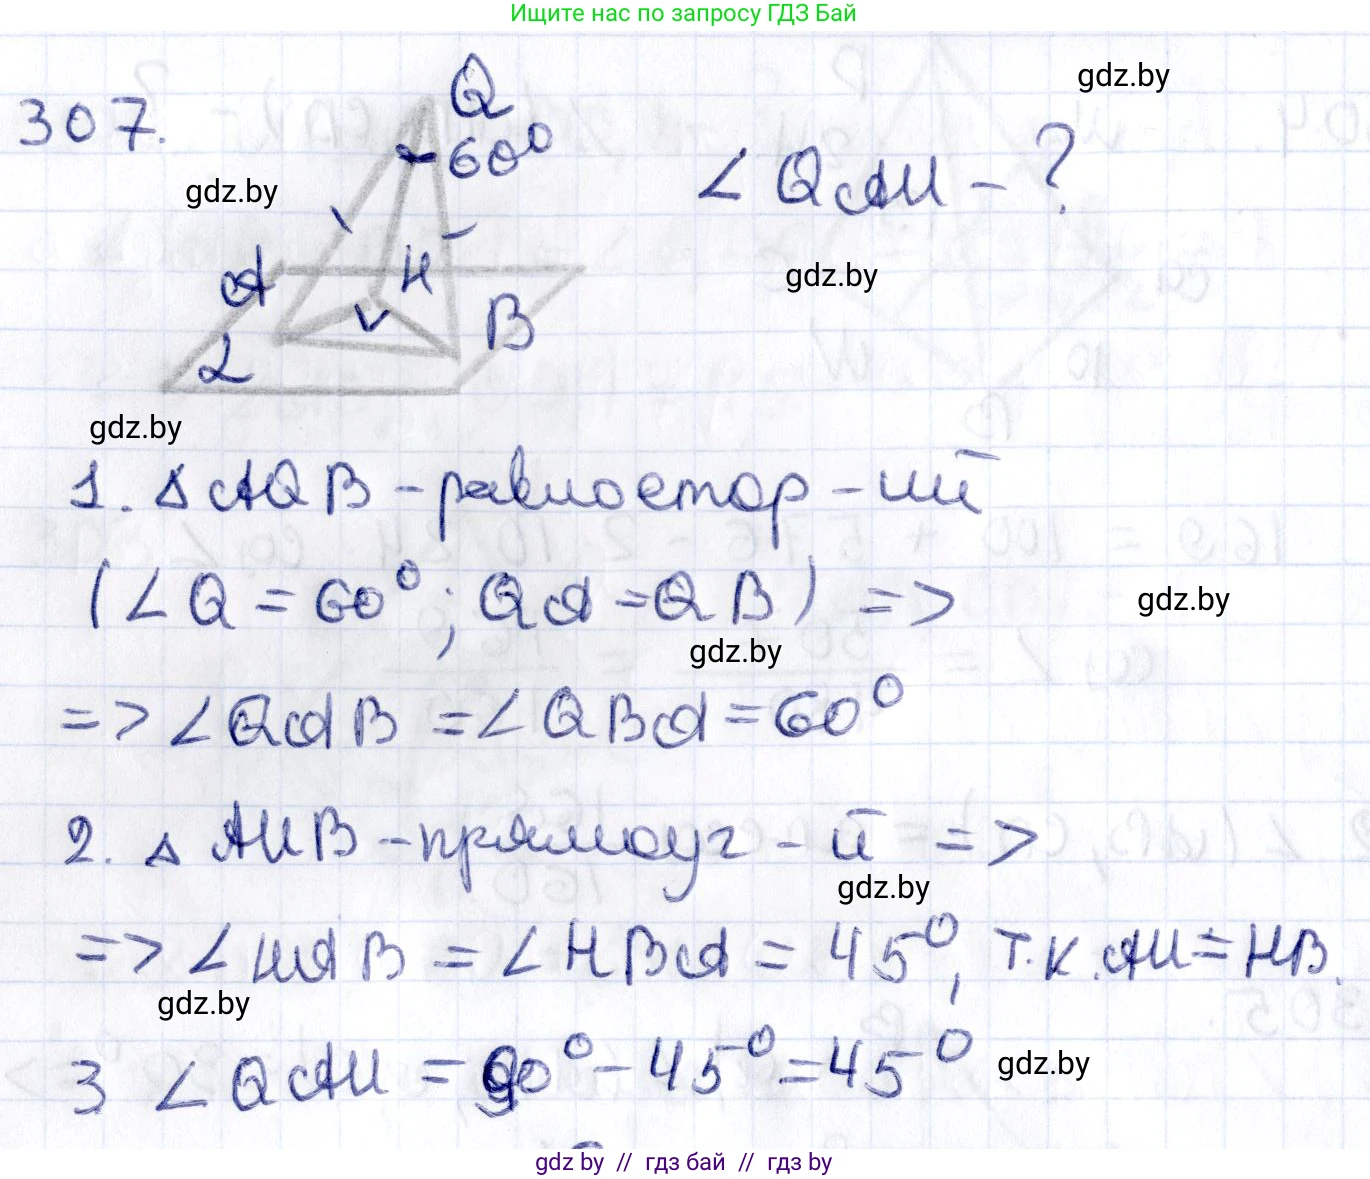 Ищите нас по запросу ГДЗ Бай
307.
Q
60°
gdz.by
gdz.by
∠ QAH - ?
gdz.by
A
H
B
α
gdz.by
1. △ AQB - равностор-ий
(∠Q = 60°; QA = QB) =>
gdz.by
gdz.by
=> ∠QAB = ∠QBA = 60°
2. △ AHB - прямоуг - й =>
gdz.by
=> ∠HAB = ∠HBA = 45°, т.к. AH = HB.
gdz.by
3 ∠QAH = 90° - 45° = 45°
gdz.by
gdz by // гдз бай // гдз by